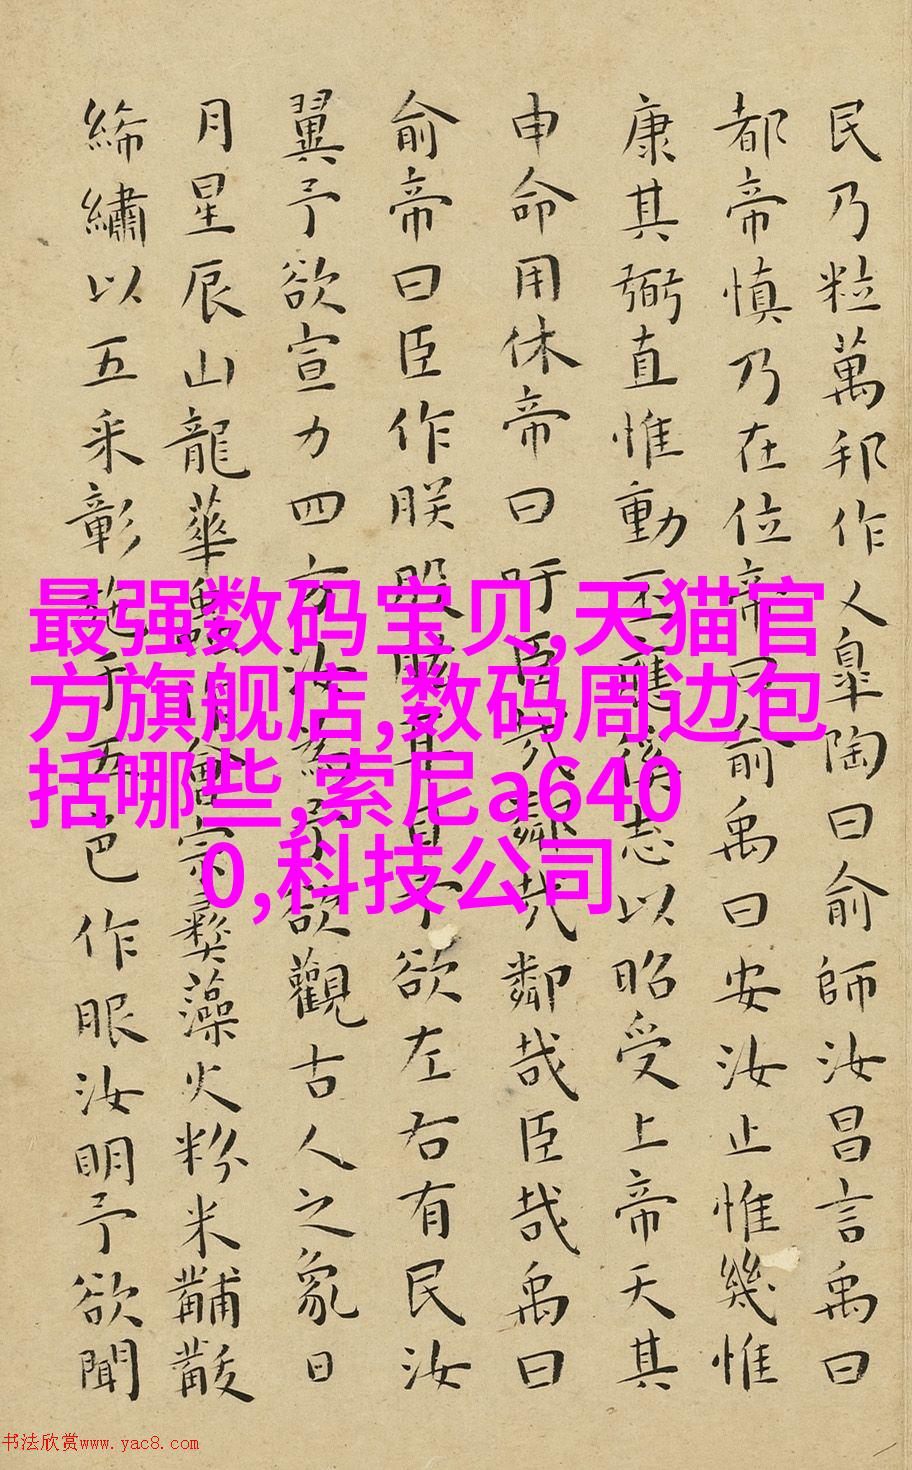 民乃粒萬邦作乂皐陶曰俞師汝昌言禹曰
都帝慎乃在位帝曰俞禹曰安汝止惟幾惟
康其弼直惟動丕應徯志以昭受上帝天其
申命用休帝曰吁臣哉鄰哉鄰哉臣哉禹曰
俞帝曰臣作朕股肱耳目予欲左右有民汝
翼予欲宣力四方汝為予欲觀古人之象日
月星辰山龍華蟲作會宗彝藻火粉米黼黻
絺繡以五采彰施于五色作服汝明予欲聞
最强数码宝贝,天猫官
方旗舰店,数码周边包
括哪些,索尼a640
0,科技公司
书法欣赏www.yac8.com